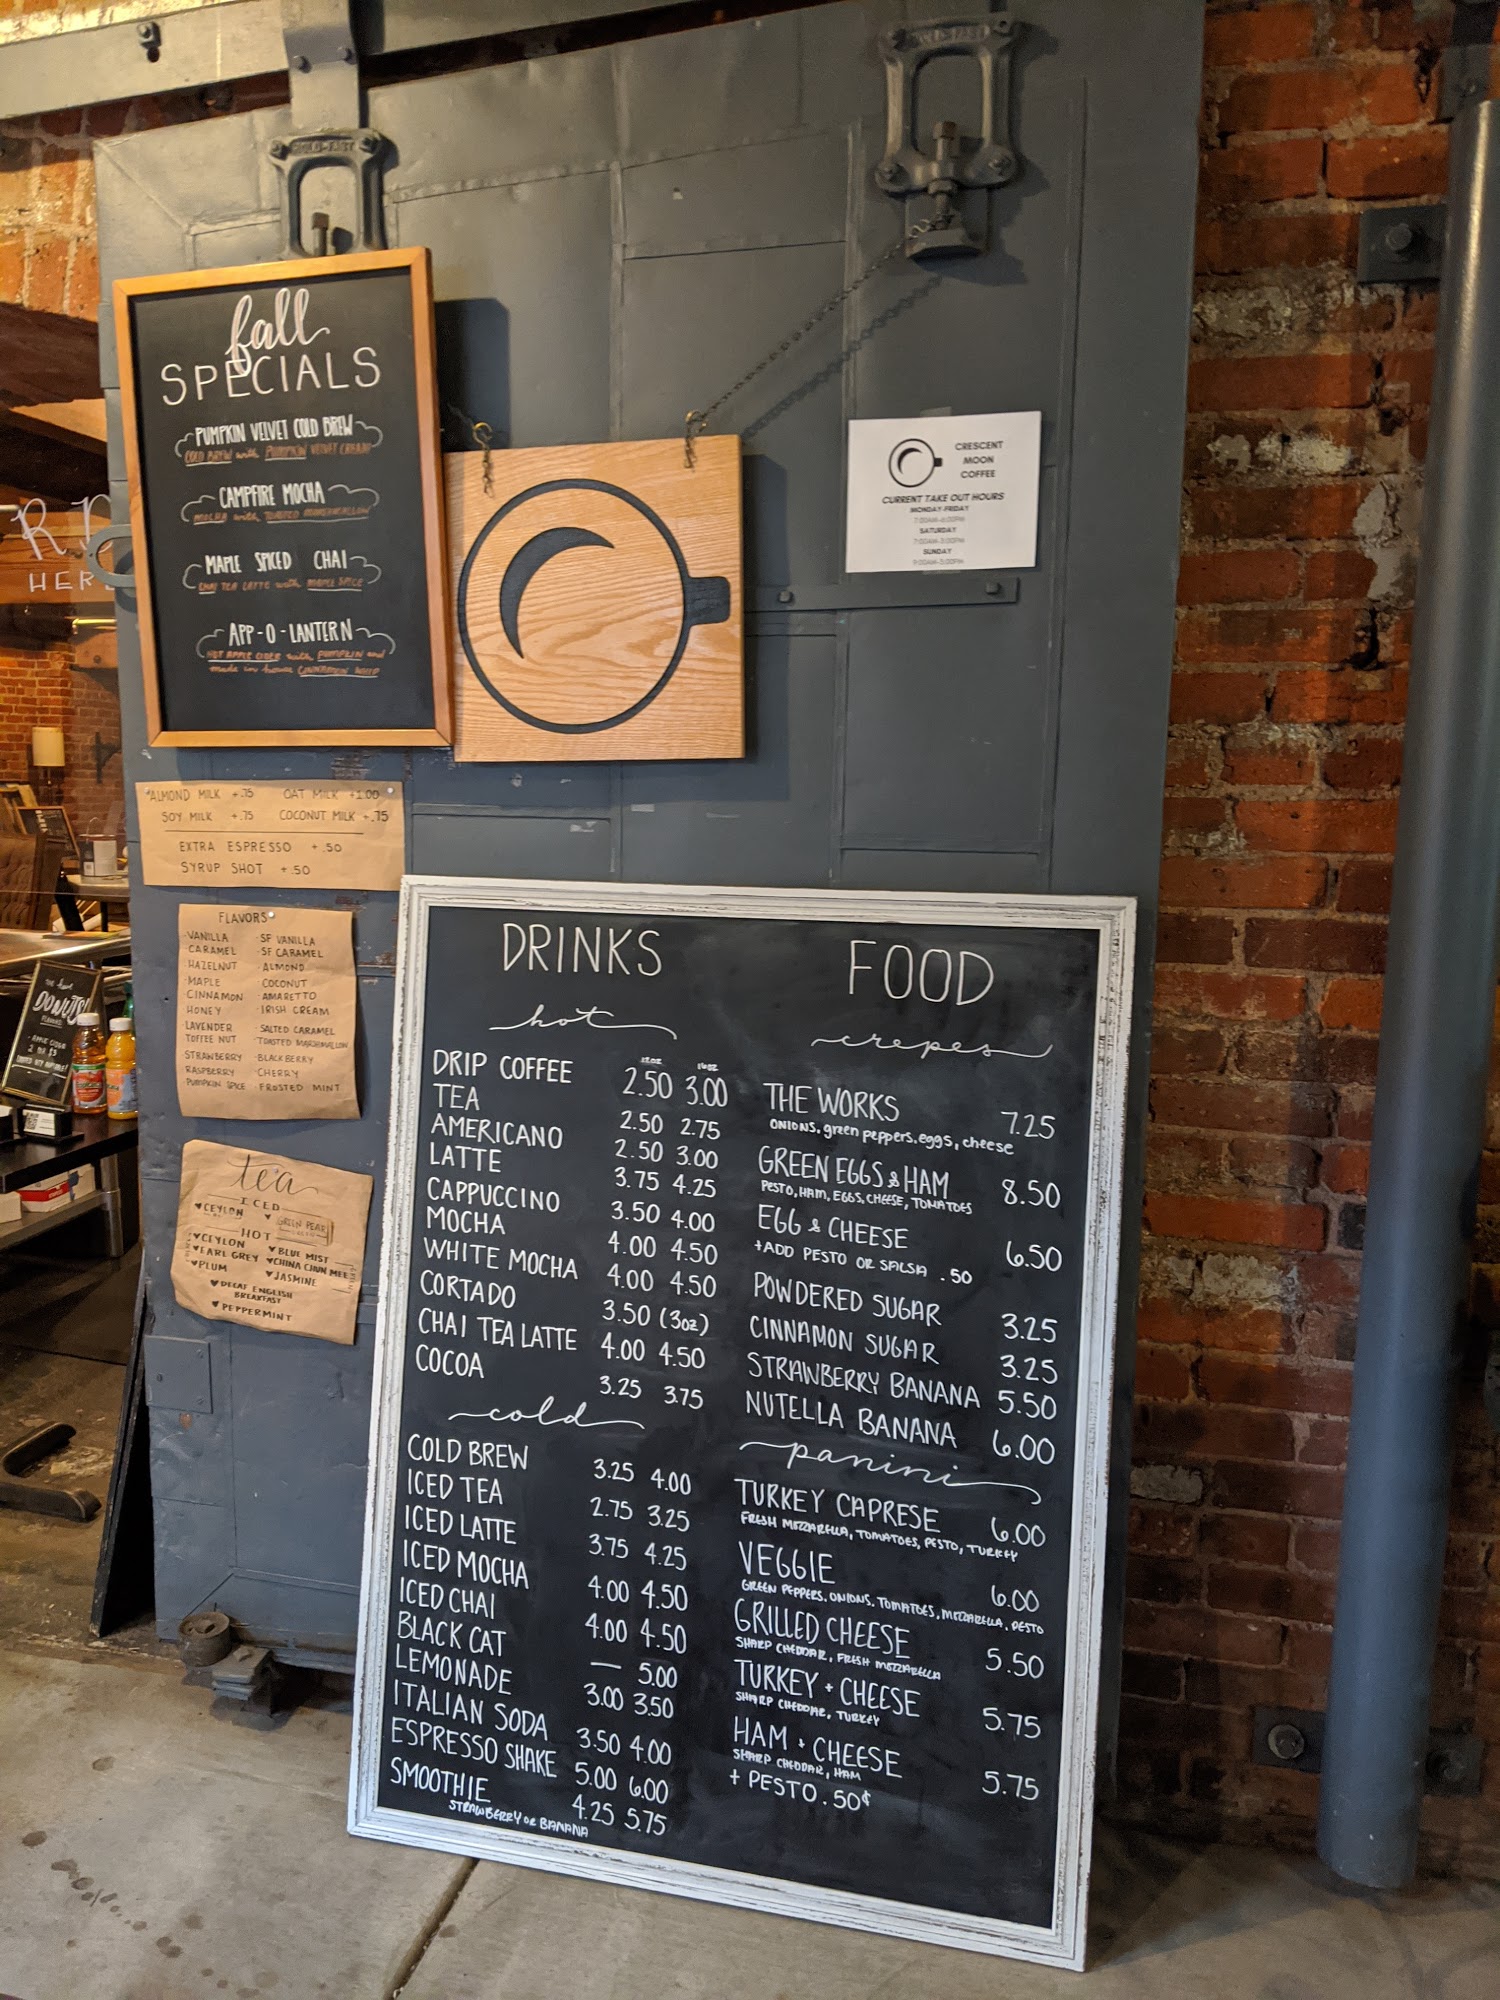 HOLD-FAST
fall
SPECIALS
PUMPKIN VELVET COLD BREW
COLD BREW with PUMPKIN VELVET CREAM
CAMPFIRE MOCHA
MOCHA with TOASTED MARSHMALLOW
MAPLE SPICED CHAI
CHAI TEA LATTE with MAPLE SPICE
APP-O-LANTERN
HOT APPLE CIDER with PUMPKIN and
made in house CINNAMON WHIP
CRESCENT
MOON
COFFEE
CURRENT TAKE OUT HOURS
MONDAY-FRIDAY
7:00AM-6:00PM
SATURDAY
7:00AM-3:00PM
SUNDAY
9:00AM-3:00PM
ALMOND MILK +.75 OAT MILK +1.00
SOY MILK +.75 COCONUT MILK +.75
EXTRA ESPRESSO +.50
SYRUP SHOT +.50
FLAVORS
·VANILLA ·SF VANILLA
CARAMEL ·SF CARAMEL
·HAZELNUT ·ALMOND
·MAPLE COCONUT
CINNAMON ·AMARETTO
HONEY ·IRISH CREAM
·LAVENDER ·SALTED CARAMEL
TOFFEE NUT ·TOASTED MARSHMALLOW
·STRAWBERRY ·BLACKBERRY
RASPBERRY ·CHERRY
PUMPKIN SPICE ·FROSTED MINT
tea
ICED
♥CEYLON ♥GREEN PEAR
HOT
♥CEYLON ♥BLUE MIST
♥EARL GREY ♥CHINA CHUN MEE
♥PLUM ♥JASMINE
♥DECAF ENGLISH
BREAKFAST
♥PEPPERMINT
DONUTS!
2 for $5
DRINKS
hot
12oz 16oz
DRIP COFFEE 2.50 3.00
TEA 2.50 2.75
AMERICANO 2.50 3.00
LATTE 3.75 4.25
CAPPUCCINO 3.50 4.00
MOCHA 4.00 4.50
WHITE MOCHA 4.00 4.50
CORTADO 3.50 (3oz)
CHAI TEA LATTE 4.00 4.50
COCOA 3.25 3.75
cold
COLD BREW 3.25 4.00
ICED TEA 2.75 3.25
ICED LATTE 3.75 4.25
ICED MOCHA 4.00 4.50
ICED CHAI 4.00 4.50
BLACK CAT — 5.00
LEMONADE 3.00 3.50
ITALIAN SODA 3.50 4.00
ESPRESSO SHAKE 5.00 6.00
SMOOTHIE 4.25 5.75
STRAWBERRY OR BANANA
FOOD
crepes
THE WORKS 7.25
ONIONS, green peppers, eggs, cheese
GREEN EGGS & HAM 8.50
PESTO, HAM, EGGS, CHEESE, TOMATOES
EGG & CHEESE 6.50
+ADD PESTO OR SALSA .50
POWDERED SUGAR 3.25
CINNAMON SUGAR 3.25
STRAWBERRY BANANA 5.50
NUTELLA BANANA 6.00
panini
TURKEY CAPRESE 6.00
FRESH MOZZARELLA, TOMATOES, PESTO, TURKEY
VEGGIE 6.00
GREEN PEPPERS, ONIONS, TOMATOES, MOZZARELLA, PESTO
GRILLED CHEESE 5.50
SHARP CHEDDAR, FRESH MOZZARELLA
TURKEY + CHEESE 5.75
SHARP CHEDDAR, TURKEY
HAM + CHEESE 5.75
SHARP CHEDDAR, HAM
+ PESTO .50¢